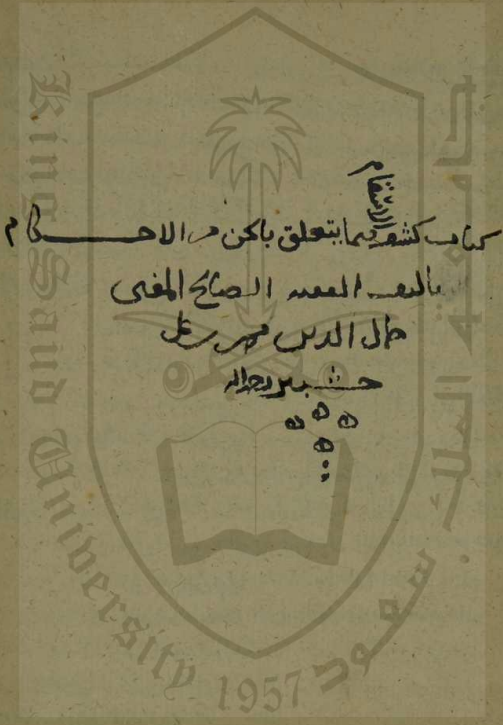 كتاب كشف اللثام فيما يتعلق بالجن من الاحكام
تاليف الفقيه الصالح المفتي
جمال الدين محمد بن علي
حشيبر رحمه الله
King Saud University
جامعة الملك سعود
1957